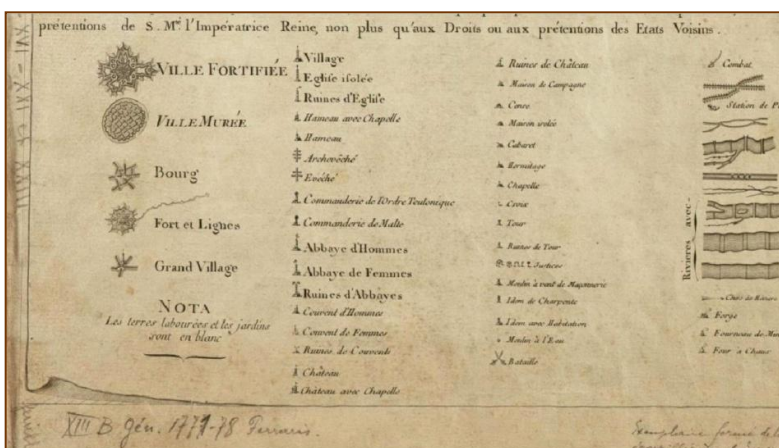 prétentions de S. M.té l'Impératrice Reine, non plus qu'aux Droits ou aux prétentions des Etats Voisins.
VILLE FORTIFIÉE
VILLE MURÉE
Bourg
Fort et Lignes
Grand Village
NOTA
Les terres labourées et les jardins
sont en blanc
Village
Eglise isolée
Ruines d'Eglise
Hameau avec Chapelle
Hameau
Archevêché
Evêché
Commanderie de l'Ordre Teutonique
Commanderie de Malte
Abbaye d'Hommes
Abbaye de Femmes
Ruines d'Abbayes
Couvent d'Hommes
Couvent de Femmes
Ruines de Couvents
Château
Château avec Chapelle
Ruines de Château
Maison de Campagne
Cense
Maison isolée
Cabaret
Hermitage
Chapelle
Croix
Tour
Ruines de Tour
Justices
Moulin à vent de Maçonnerie
Idem de Charpente
Idem avec Habitation
Moulin à l'Eau
Bataille
Combat
Station de P
Rivieres avec
Forge
Fourneau de
Four a Chaux
XIII B Gén. 1771-78 Ferraris.
Exemplaire